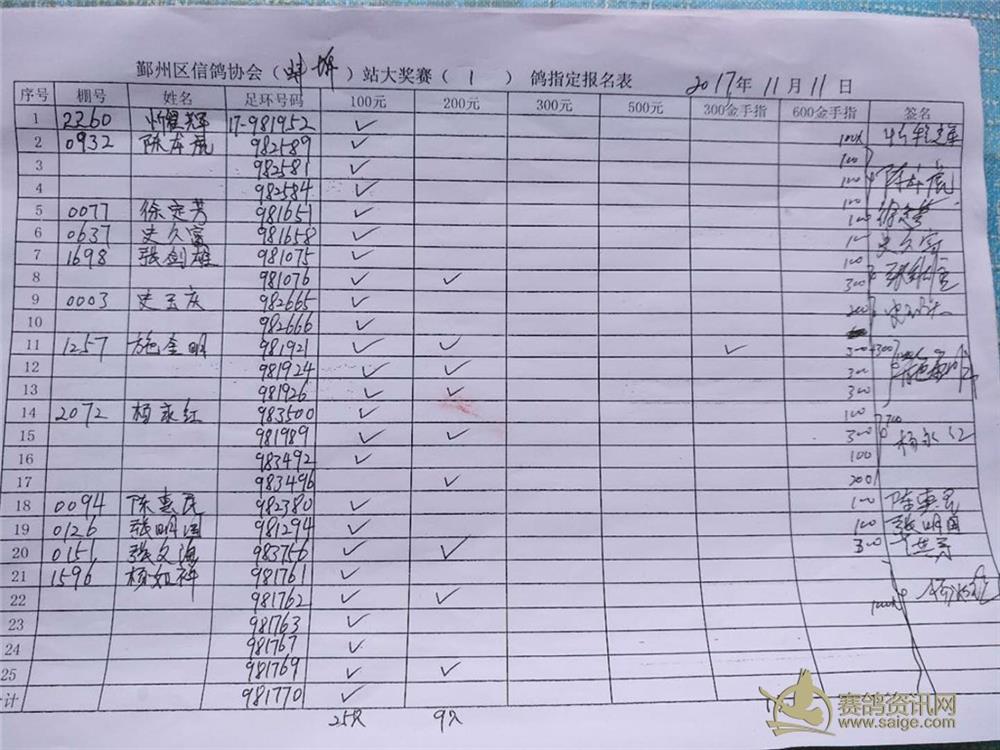 鄞州区信鸽协会（蚌埠）站大奖赛（1）鸽指定报名表 2017年11月11日
序号 棚号 姓名 足环号码 100元 200元 300元 500元 300金手指 600金手指 签名
1 2260 17-981952 ✓
2 0932 陈存虎 982589 ✓ 100
3 982581 ✓ 100
4 982584 ✓ 100
5 0077 徐定芳 981651 ✓ 100 徐定芳
6 0637 史久富 981658 ✓ 100 史久富
7 1698 张剑雄 981075 ✓ 100
8 981076 ✓ ✓ 300 张剑雄
9 0003 史玉庆 982665 ✓ 200
10 982666 ✓
11 1257 施金明 981921 ✓ ✓ ✓ 300+300
12 981924 ✓ ✓ 300 施金明
13 981926 ✓ ✓ 300
14 2072 杨永红 983500 ✓ 100
15 981989 ✓ ✓ 300 杨永红
16 983492 ✓ 100
17 983496 ✓ 200
18 0094 陈惠民 982380 ✓ 100 陈惠民
19 0126 张明国 981294 ✓ 100 张明国
20 0151 983756 ✓ ✓ 300
21 1596 杨如祥 981761 ✓
22 981762 ✓ ✓
23 981763 ✓
24 981767 ✓
25 981769 ✓ ✓
计 981770 ✓
25只 9只
赛鸽资讯网
www.saige.com